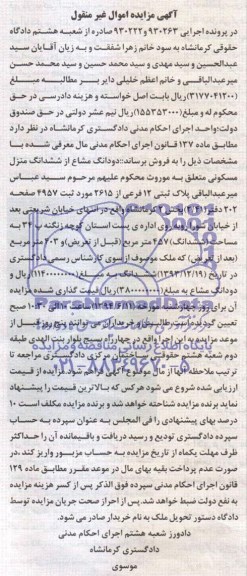 آگهی مزایده اموال غیر منقول
در پرونده اجرایی ۹۳۰۲۶۳ و ۹۳۰۲۲۲ صادره از شعبه هشتم دادگاه
حقوقی کرمانشاه به سود خانم زهرا شفقت و به زیان آقایان سید
عبدالحسین و سید مهدی و سید محمد حسین و سید محمد حسن
میرعبدالباقی و خانم اعظم خلیلی دایر بر مطالبه مبلغ
(۳۱۷۷۰۴۱۲۰۰) ریال بابت اصل خواسته و هزینه دادرسی در حق
محکوم له و مبلغ (۱۵۵۳۵۳۰۰۰) ریال نیم عشر دولتی در حق صندوق
دولت؛ واحد اجرای احکام مدنی دادگستری کرمانشاه در نظر دارد
مطابق ماده ۱۳۷ قانون اجرای احکام مدنی مال معرفی شده با
مشخصات ذیل را به فروش برساند::دودانگ مشاع از ششدانگ منزل
مسکونی متعلق به موروث محکوم علیهم مرحوم سید عباس
میرعبدالباقی پلاک ثبتی ۱۲ فرعی از ۲۶۱۵ مورد ثبت ۴۹۵۷ صفحه
۲۰۲ دفتر کرمانشاه واقع در انتهای خیابان شریعتی بعد
از خیابان روبه روی اداره ی پست استان کوچه زنگنه پ ۳۴ به
مساحت (ششدانگ) ۴۵۷ متر مربع (قبل از تعریض) و ۴۰۳ متر مربع
(بعد از تعریض) که ملک موصوف از سوی کارشناس رسمی دادگستری
در تاریخ (۱۳۹۳/۱۲/۱۹) ششدانگ به مبلغ ریال و
دودانگ مشاع به مبلغ ریال قیمت گذاری شده مزایده
آن برای روز ساعت الی ۱۰:۳۰ صبح
تعیین گردیده است طالبین و خریداران می توانند پنج روز قبل از
موعد مزایده به این اجرا واقع در چهارراه بسیج بلوار بنت الهدی طبقه
دوم شعبه هشتم حقوقی ساختمان مرکزی دادگستری مراجعه تا
ترتیب ملاحظه آنها از مال موضوع آگهی فراهم شود. مزایده از قیمت
ارزیابی شده شروع می شود هرکس که بالاترین قیمت را پیشنهاد
نماید برنده مزایده شناخته خواهد شد و برنده مزایده مکلف است ۱۰
درصد بهای پیشنهادی را فی المجلس به عنوان سپرده به حساب
سپرده دادگستری تودیع و رسید دریافت و باقیمانده آن را حداکثر
ظرف مهلت یکماه از تاریخ مزایده به حساب مزبور واریز کند ،در
صورت عدم پرداخت بقیه بهای مال در موعد مقرر مطابق ماده ۱۲۹
قانون اجرای احکام مدنی سپرده فوق الذکر پس از کسر هزینه مزایده
به نفع دولت ضبط خواهد شد. پس از احراز صحت جریان مزایده توسط
دادگاه دستور تحویل ملک به نام خریدار صادر می شود.
دادورز شعبه هشتم اجرای احکام مدنی
دادگستری کرمانشاه
موسوی